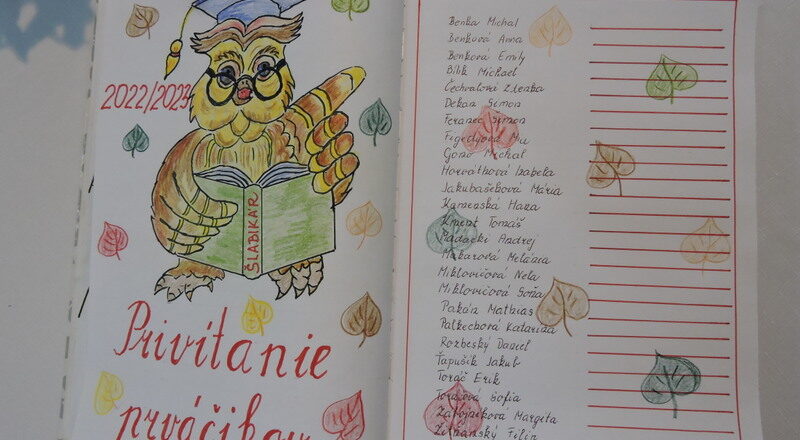 2022/2023
ŠLABIKÁR
Privítanie
prváčikov
Benka Michal
Benková Anna
Benková Emily
Bilik Michael
Čechvalová Zdenka
Dekán Šimon
Feranec Šimon
Gono Michal
Horváthová Izabela
Jakubašeková Mária
Kamenská Hana
Kment Tomáš
Padacki Andrej
Makarová Melánia
Miklovičová Nela
Miklovičová Soňa
Pakán Mathias
Palkechová Katarína
Rozbeský Daniel
Ťapušík Jakub
Toráč Erik
Toráčová Sofia
Zátorníková Margita
Žitňanský Filip